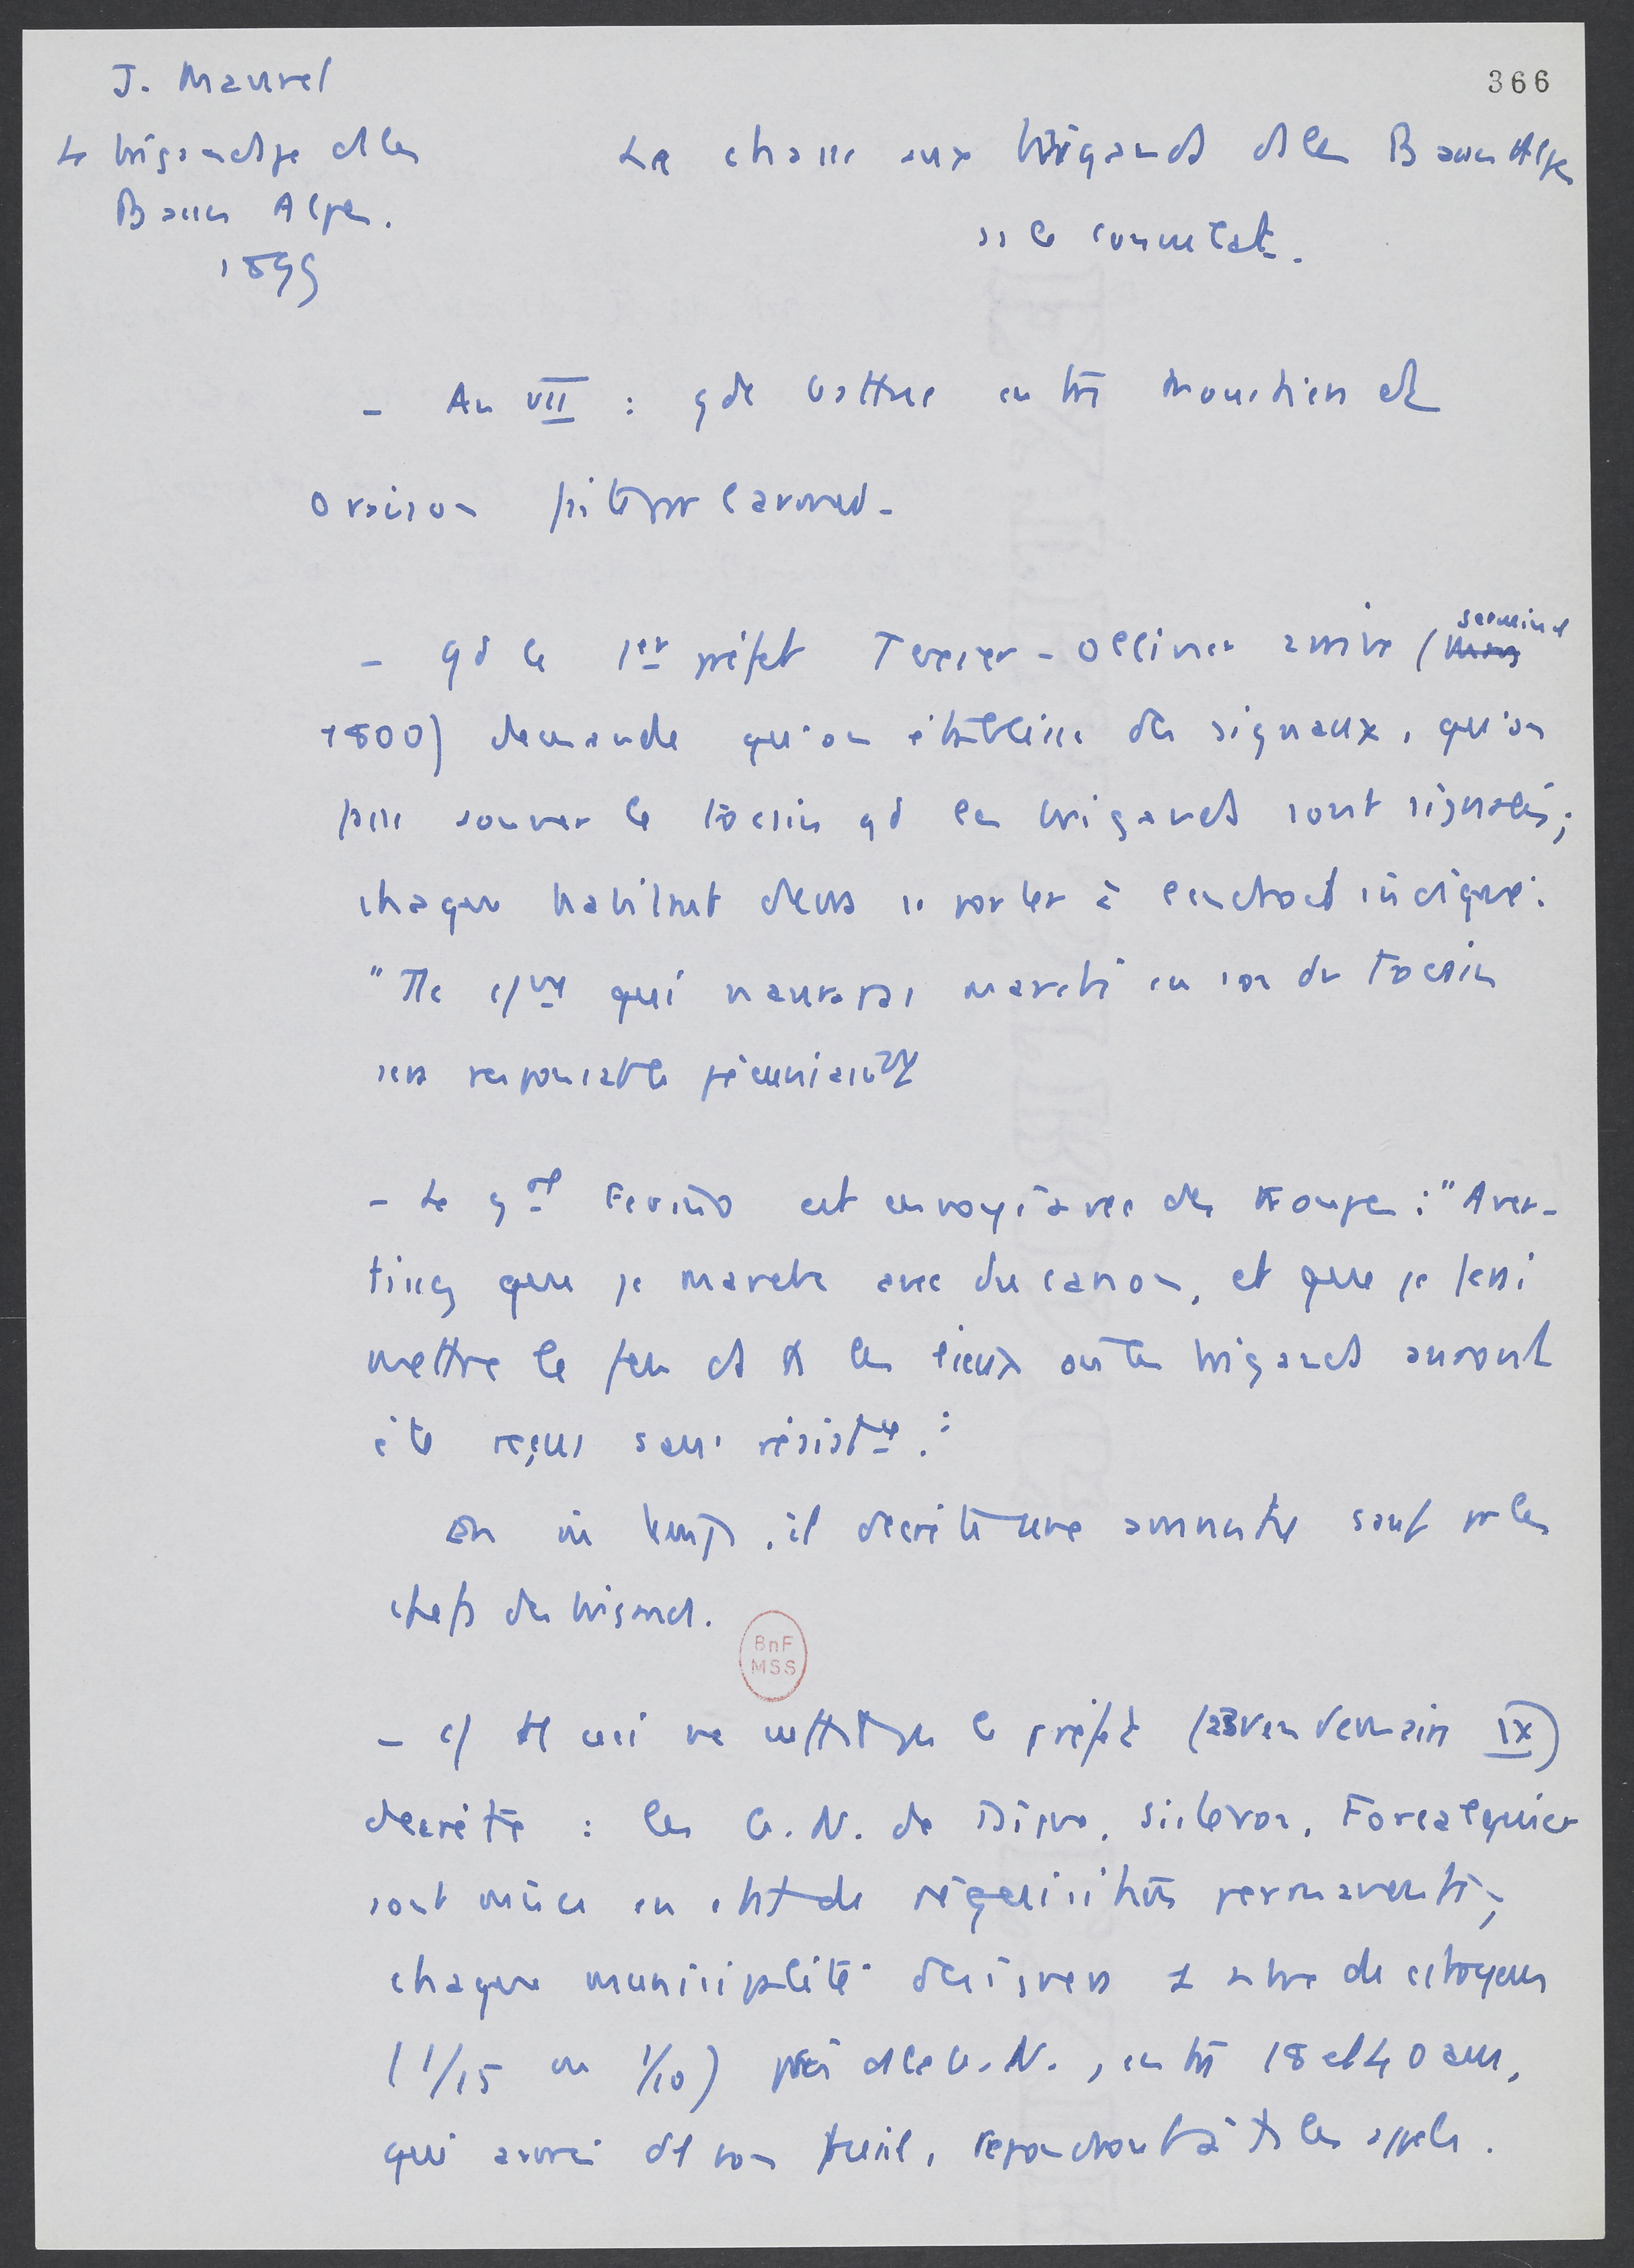 J. Maurel
366
Le brigandage ds les
Basses Alpes.
1899
La chasse aux brigands ds les Basses Alpes
ss le consulat.
- An VII : gde battue entre Moustiers et
Oraison
- qd le 1er préfet Texier-Olivier arrive (germinal
1800) demande qu'on établisse des signaux, qu'on
fasse sonner le tocsin qd les brigands sont signalés;
chaque habitant devra se porter à l'endroit indiqué.
"Tte cne qui n'aura pas marché au son du tocsin
sera responsable pécuniairt"
- Le gal Ferino est envoyé avec des troupes : "Aver-
tissez que je marche avec du canon, et que je ferai
mettre le feu ds ts les lieux où les brigands auront
été reçus sans résistce."
En m temps, il décrète une amnistie sauf pr les
chefs des brigands.
BnF
MSS
- c/ tt ceci ne suffit pas le préfet (23 vendémiaire IX)
décrète : les G.N. de Digne, Sisteron, Forcalquier
sont mises en état de réquisition permanente;
chaque municipalité désignera 1 nbre de citoyens
(1/15 ou 1/10) pris ds la G.N., entre 18 et 40 ans,
qui armés de son fusil, répondront à ts les appels.